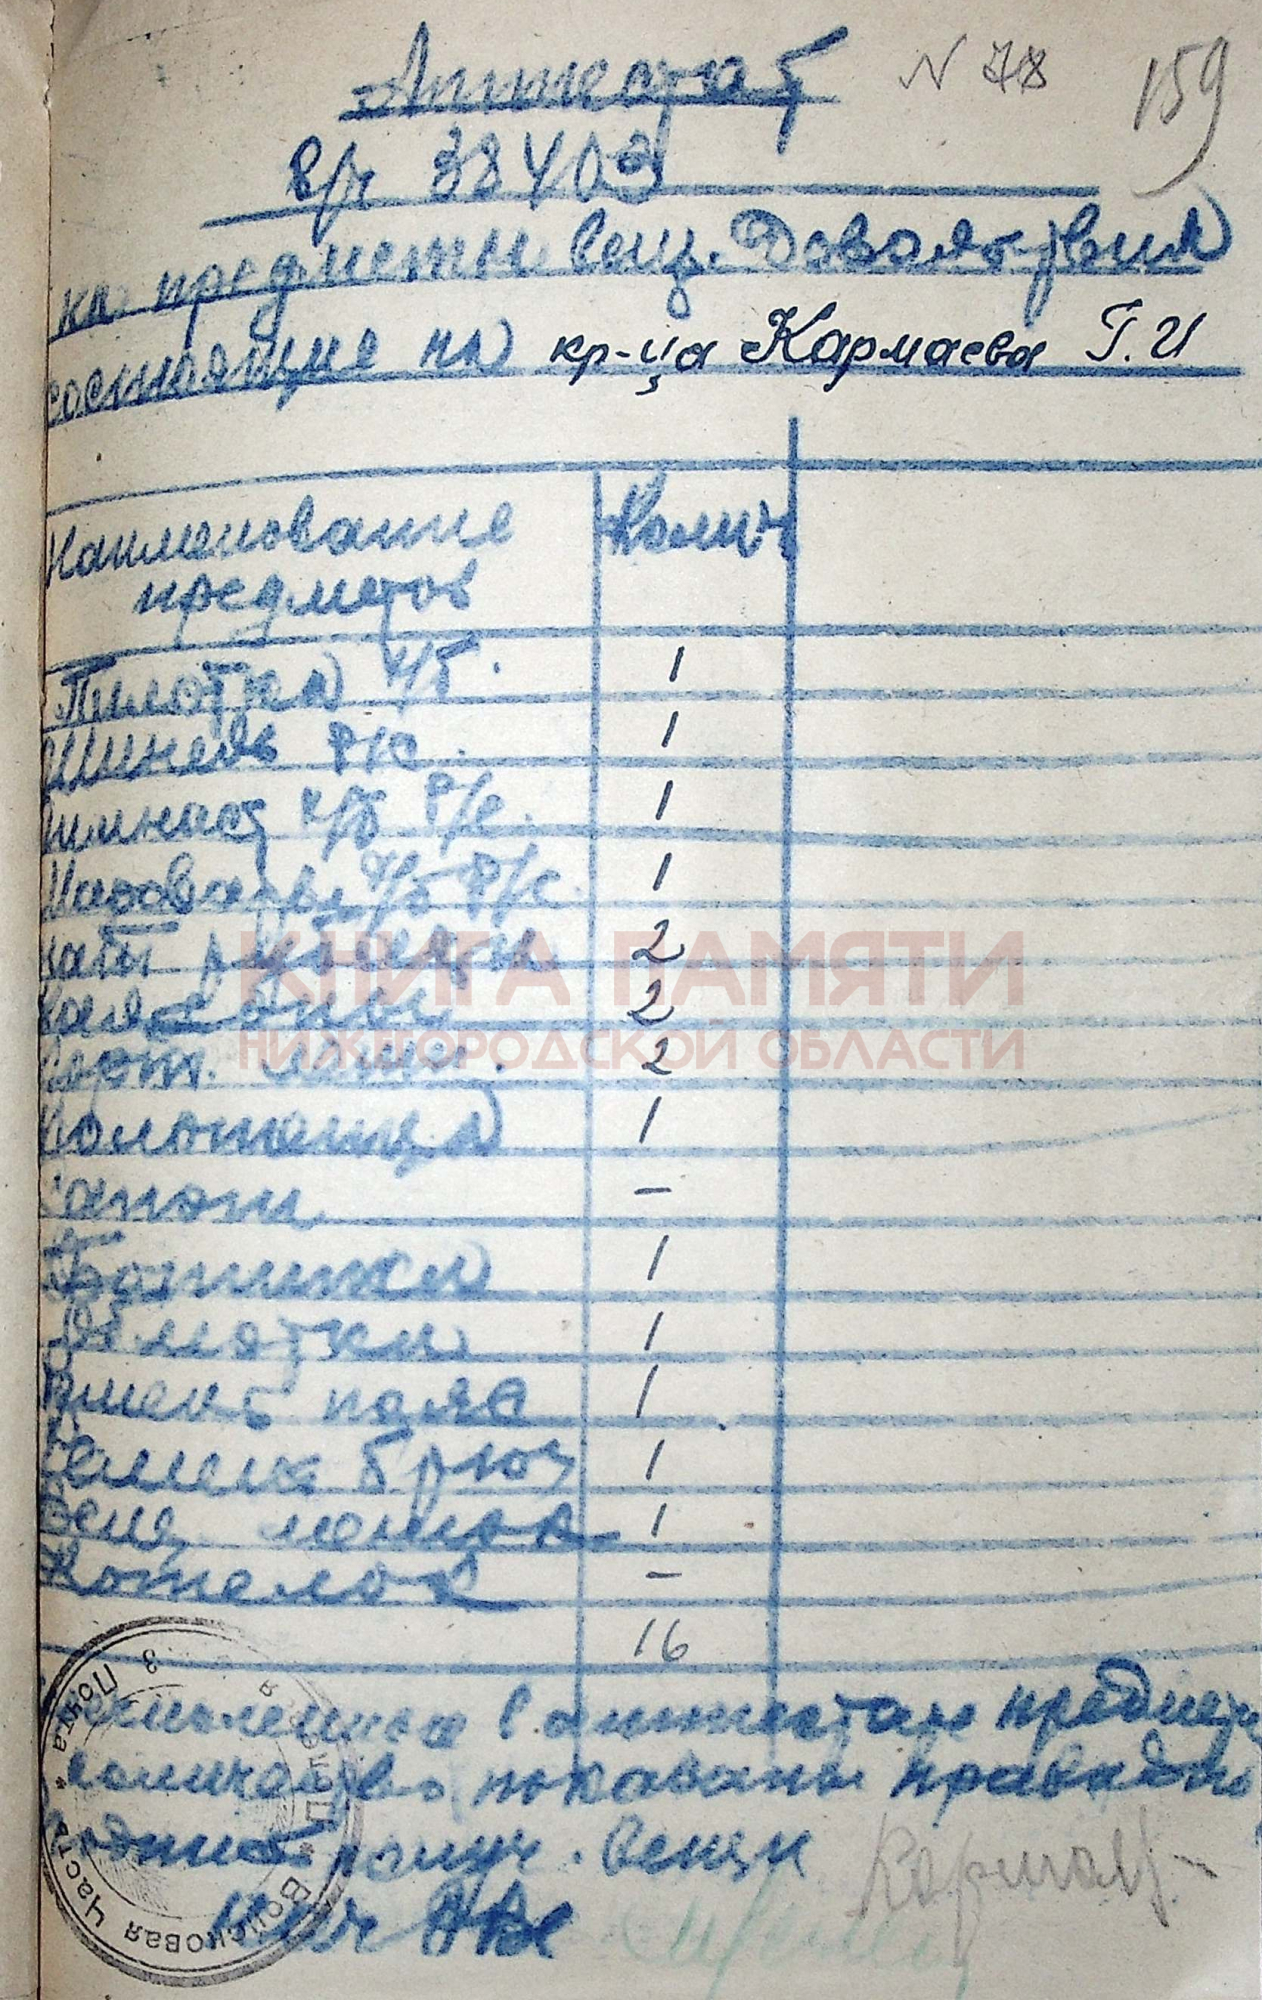 Аттестат N 78 159
в/ч 38403
на предметы вещ. Довольствия
состоящие на кр-ца Кармаева Г.И
Наименование Колич
предметов
Пилотка х/б. 1
Шинель р/с. 1
Гимнаст х/б р/с. 1
Шаровары х/б р/с. 1
нат рубашки 2
кальсоны 2
порт. летн. 2
Полотенца 1
Сапоги —
Ботинки 1
Обмотки 1
Ремень пояс 1
Ремень брюч 1
Вещ мешок 1
Котелок —
16
в аттестате предметы
количество показаны правильно
получ. вещи
Нач
КНИГА ПАМЯТИ
НИЖЕГОРОДСКОЙ ОБЛАСТИ
Войсковая Часть * Полевая Почта